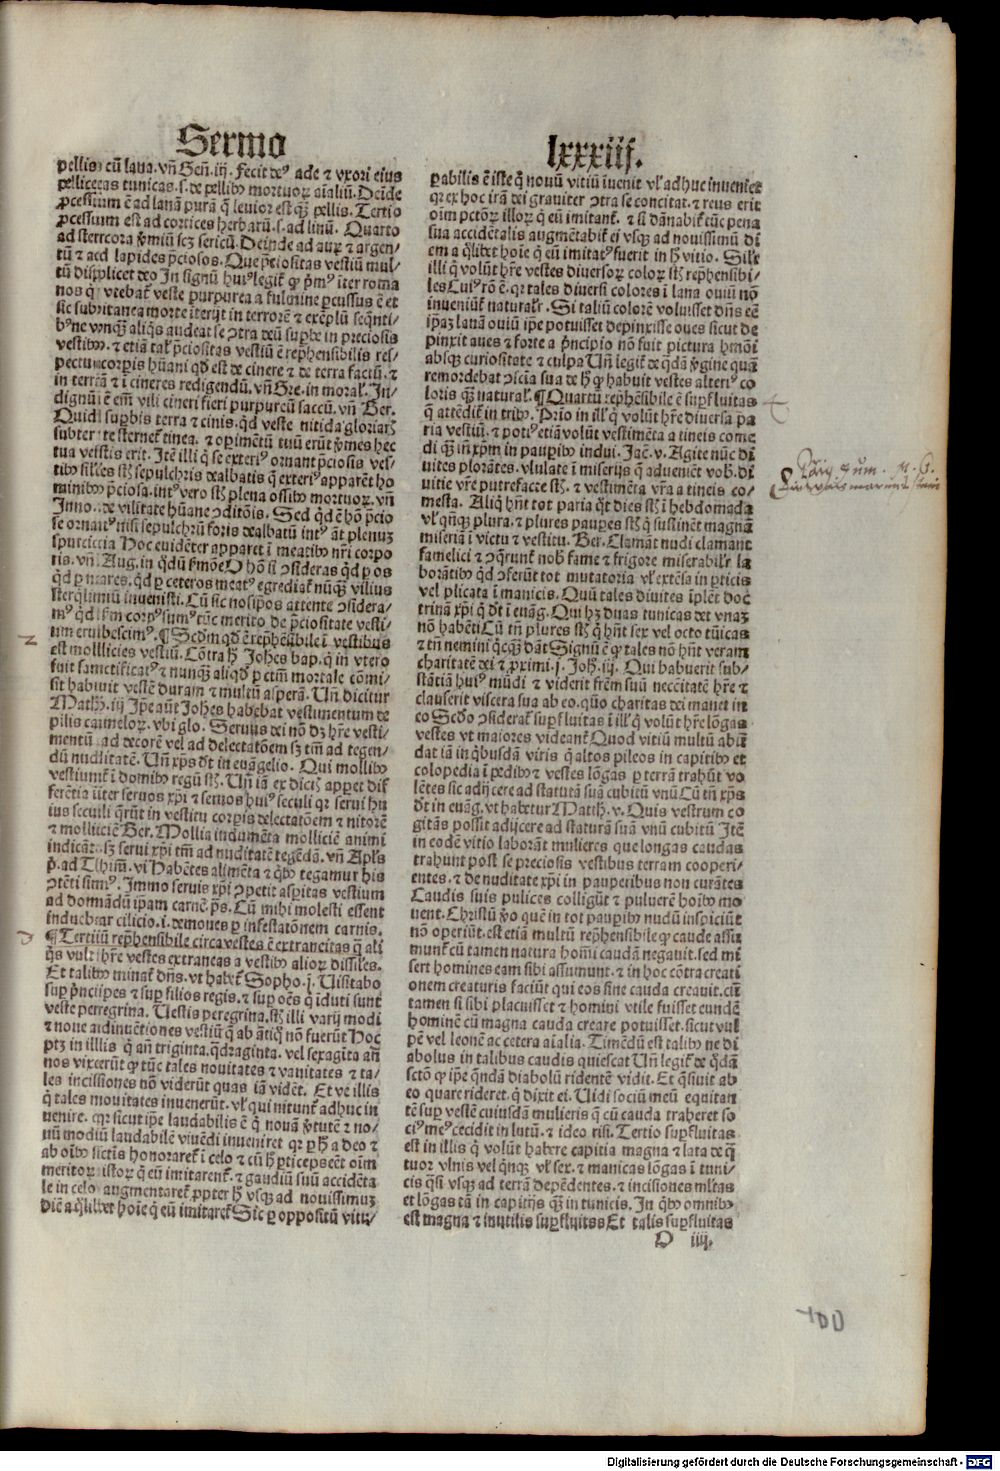 Sermo
lxxxiiȷ.
pellis cū lana. vñ Geñ. iij. Fecit deꝰ ade ⁊ vxori eius
pelliceas tunicas. s. de pellibꝰ mortuoꝝ aīaliū. Deīde
ꝓcessum ē ad lanā purā q̄ leuior est qꝫ pellis. Tertio
ꝓcessum est ad cortices herbarū. s. ad linū. Quarto
ad stercora v̓miū scꝫ sericū. Deinde ad auꝝ ⁊ argen/
tū ⁊ ad lapides p̄ciosos. Que p̄ciositas vestiū mul/
tū displicet deo In signū huiꝰ legit̄ ꝙ pͥmꝰ īter roma
nos q̇ vtebat̄ veste purpurea a fulmine ꝑcussus ē et
sic subitanea morte īterijt in terrorē ⁊ exēplū seq̄nti/
bꝰ ne vnqꝫ aliq̇s audeat se ɔtra deū supbe in preciosis
vestibꝰ. ⁊ etiā tal̓ p̄ciositas vestiū ē rep̄hensibilis res/
pectu corꝑis hūani qd̓ est de cinere ⁊ de terra factū. ⁊
in terrā ⁊ ī cineres redigendū. vñ Gre. in moral̓. In/
dignū ē em̄ vili cineri fieri purpureū saccū. vñ Ber.
Quid suꝑbis terra ⁊ cinis. qd̓ veste nitida gloriaris
subter te sternet̄ tinea. ⁊ oꝑimētū tuū erūt v̓mes hec
tua vestis erit. Itē illi q̇ se exteriꝰ ornant p̄ciosis ves/
tibꝰ sil̓es st̄ sepulchris dealbatis q̄ exteriꝰ apparēt ho
minibꝰ p̄ciosa. intꝰ vero st̄ plena ossibꝰ mortuoꝝ. vñ
Inno. de vilitate hūane ɔditōis. Sed qd̓ ē hō p̄cio
se ornatꝰ nisi sepulchrū foris dealbatū intꝰ āt plenuꝫ
spurcicia Hoc euidēter apparet ī meatibꝰ nr̄i corpo
ris. vñ Aug. in q̇dā s̓mōe O hō si ɔsideras qd̓ ꝑ os
qd̓ ꝑ nares. qd̓ ꝑ ceteros meatꝰ egrediat̄ nūqꝫ vilius
sterq̇liniū inuenisti. Cū sic nosip̄os attente ɔsidera/
mꝰ qd̓ s̓m corpꝰ sumꝰ tūc merito de p̄ciositate vesti/
um erubescimꝰ. ¶ Scd̓m qd̓ ē rep̄hēsibile ī vestibus
est mollicies vestiū. Cōtra h̓ Joh̓es bap. q̇ in vtero
fuit sanctificatꝰ ⁊ nunqꝫ aliqd̓ pctm̄ mortale cōmi/
sit habuit vestē duram ⁊ multū asperā. Vñ dicitur
Math̓. iij Ip̄e aūt Joh̓es habebat vestimentum de
pilis cameloꝝ. vbi glo. Seruus dei nō dꝫ hr̄e vesti/
mentū ad decorē vel ad delectatōem sꝫ tm̄ ad tegen/
dū nuditatē. Vñ xp̄s dt̄ in euāgelio. Qui mollibꝰ
vestiunt̄ ī domibꝰ regū st̄. Vñ iā ex dictis apparet dif
ferētia īter seruos xp̄i ⁊ seruos huiꝰ seculi qꝛ serui hu
ius seculi q̄rūt in vestitu corꝑis delectatōem ⁊ nitorē
⁊ molliciē Ber. Mollia indumēta molliciē animi
indicāt. sꝫ serui xp̄i tm̄ ad nuditatē tegēdā. vñ Apl̓s
p̓. ad Thim̄. vi Habētes alimēta ⁊ q̇bꝰ tegamur his
ɔtēti simꝰ. Immo seruis xp̄i ɔpetit asꝑitas vestium
ad domādū ip̄am carnē. ps̄. Cū mihi molesti essent
induebar cilicio. i. demones ꝑ infestatōnem carnis.
¶ Tertiū rep̄hensibile circa vestes ē extraneitas q̄ ali
q̇s vult hr̄e vestes extraneas a vestibꝰ alioꝝ dissil̓es.
Et talibꝰ minat̄ dn̄s. vt habet̄ Sopho. j. Uisitabo
suꝑ p̓ncipes ⁊ suꝑ filios regis. ⁊ suꝑ oēs q̇ īduti sunt
veste peregrina. Uestis peregrina. st̄ illi varij modi
⁊ noue adinuētiones vestiū q̄ ab ātiq̇ nō fuerūt Hoc
ptꝫ in illis q̇ an̄ triginta. q̄draginta. vel sexagīta an̄
nos vixerūt ꝙ tūc tales nouitates ⁊ vanitates ⁊ ta/
les incisiones nō viderūt quas iā vidēt. Et ve illis
q̇ tales nouitates inuenerūt. vl̓ qui nitunt̄ adhuc in
uenire. qꝛ sicut ip̄e laudabilis ē q̇ nouā v̓tutē ⁊ no/
uū modū laudabilē viuēdi inueniret qꝛ ꝑ h̓ a deo ⁊
ab oībꝰ sctis honoraret̄ ī celo ⁊ cū h̓ ꝑticepseēt oīm
meritoꝝ istoꝝ q̇ eū imitarent̄. ⁊ gaudiū suū accidēta
le in celo augmentaret̄ ꝓpter h̓ vsqꝫ ad nouissimuꝫ
diē a q̇libet hoīe q̇ eū imitaret̄ Sic ꝑ oppositū vitu/
ꝑabilis ē iste q̇ nouū vitiū īuenit vl̓ adhuc inueniet
qꝛ ex hoc irā dei grauiter ɔtra se concitat. ⁊ reus erit
oīm pctōꝝ illoꝝ q̇ eū imitant̄. ⁊ si dānabit̄ tūc pena
sua accidētalis augmētabit̄ ei vsqꝫ ad nouissimū di
em a q̇libet hoīe q̇ eū imitatꝰ fuerit in h̓ vitio. Sil̓r
illi q̇ volūt hr̄e vestes diuersoꝝ coloꝝ st̄ rep̄hensibi/
les Cuiꝰ rō ē. qꝛ tales diuersi colores ī lana ouiū nō
inueniūt̄ natural̓r. Si taliū colorē voluisset dn̄s eē
ip̄aꝫ lanā ouiū ip̄e potuisset depinxisse oues sicut de
pinxit aues ⁊ forte a p̓ncipio nō fuit pictura hm̄ōi
absqꝫ curiositate ⁊ culpa Vñ legit̄ de q̄dā v̓gine quā
remordebat ɔscia sua de h̓ ꝙ habuit vestes alteriꝰ co
loris qꝫ natural̓. ¶ Quartū rep̄hēsibile ē suꝑfluitas
q̄ attēdit̄ in tribꝰ. Prīo in ill̓ q̇ volūt hr̄e diuersa pa
ria vestiū. ⁊ potiꝰ etiā volūt vestimēta a tineis come
di qꝫ in xp̄m in pauꝑibꝰ indui. Jac̄. v. Agite nūc di
uites plorātes. vlulate ī miserijs q̄ adueniēt vob̓. di
uitie vr̄e putrefacte st̄. ⁊ vestimēta vr̄a a tineis co/
mesta. Aliq̇ hn̄t tot paria q̇t dies st̄ ī hebdomada
vl̓ q̇nqꝫ plura. ⁊ plures pauꝑes st̄ q̇ sustinēt magnā
miseriā ī victu ⁊ vestitu. Ber. Clamāt nudi clamant
famelici ⁊ ɔq̄runt̄ nob̓ fame ⁊ frigore miserabil̓r la
borātibꝰ qd̓ ɔferūt tot mutatoria vl̓ extēsa in ꝑticis
vel plicata ī manicis. Quā tales diuites īplēt doc
trinā xp̄i q̇ dt̄ ī euāg. Qui hꝫ duas tunicas det vnaꝫ
nō habēti Cū tn̄ plures st̄ q̇ hn̄t sex vel octo tūicas
⁊ tn̄ nemini q̇cqꝫ dāt Signū ē ꝙ tales nō hn̄t veram
charitatē dei ⁊ ꝓximi. j. Joh̓. iij. Qui habuerit sub/
stātiā huiꝰ mūdi ⁊ viderit fr̄em suū necc̄itatē hr̄e ⁊
clauserit viscera sua ab eo. quō charitas dei manet in
eo Scd̓o ɔsiderat̄ suꝑfluitas ī ill̓ q̇ volūt hr̄e lōgas
vestes vt maiores videant̄ Quod vitiū multū abū
dat iā in q̇busdā viris q̇ altos pileos in capitibꝰ et
colopedia ī pedibꝰ ⁊ vestes lōgas ꝑ terrā trahūt vo
lētes sic adijcere ad staturā suā cubitū vnū Cū tn̄ xp̄s
dt̄ in euāg. vt habetur Math̓. v. Quis vestrum co
gitās possit adijcere ad staturā suā vnū cubitū Itē
in eodē vitio laborāt mulieres que longas caudas
trahunt post se preciosis vestibus terram cooperi/
entes. ⁊ de nuditate xp̄i in pauperibus non curātes
Caudis suis pulices colligūt ⁊ puluerē hoībꝰ mo
uent. Christū v̓o quē in tot pauꝑibꝰ nudū inspiciūt
nō operiūt. est etiā multū rep̄hensibile ꝙ caude assu
munt̄ cū tamen natura homī caudā negauit. sed mi
seri homines eam sibi assumunt. ⁊ in hoc cōtra creati
onem creaturis faciūt qui eos sine cauda creauit. cū
tamen si sibi placuisset ⁊ homini vtile fuisset eundē
hominē cū magna cauda creare potuisset. sicut vul
pē vel leonē ac cetera aīalia. Timēdū est talibꝰ ne di
abolus in talibus caudis quiescat Vñ legit̄ de q̇dā
sctō ꝙ ip̄e q̄ndā diabolū ridentē vidit. Et q̄siuit ab
eo quare rideret. q̇ dixit ei. Uidi sociū meū equitan
tē suꝑ vestē cuiusdā mulieris q̄ cū cauda traheret so
ciꝰ meꝰ cecidit in lutū. ⁊ ideo risi. Tertio suꝑfluitas
est in illis q̇ volūt habere capitia magna ⁊ lata de q̄
tuor vlnis vel q̇nqꝫ vl̓ sex. ⁊ manicas lōgas ī tuni/
cis q̄si vsqꝫ ad terrā depēdentes. ⁊ incisiones ml̓tas
et lōgas tā in capitijs qꝫ in tunicis. In q̇bꝰ omnibꝰ
est magna ⁊ inutilis suꝑfluitas Et talis suꝑfluitas
O iiij.
2
3
4
100
Digitalisierung gefördert durch die Deutsche Forschungsgemeinschaft - DFG